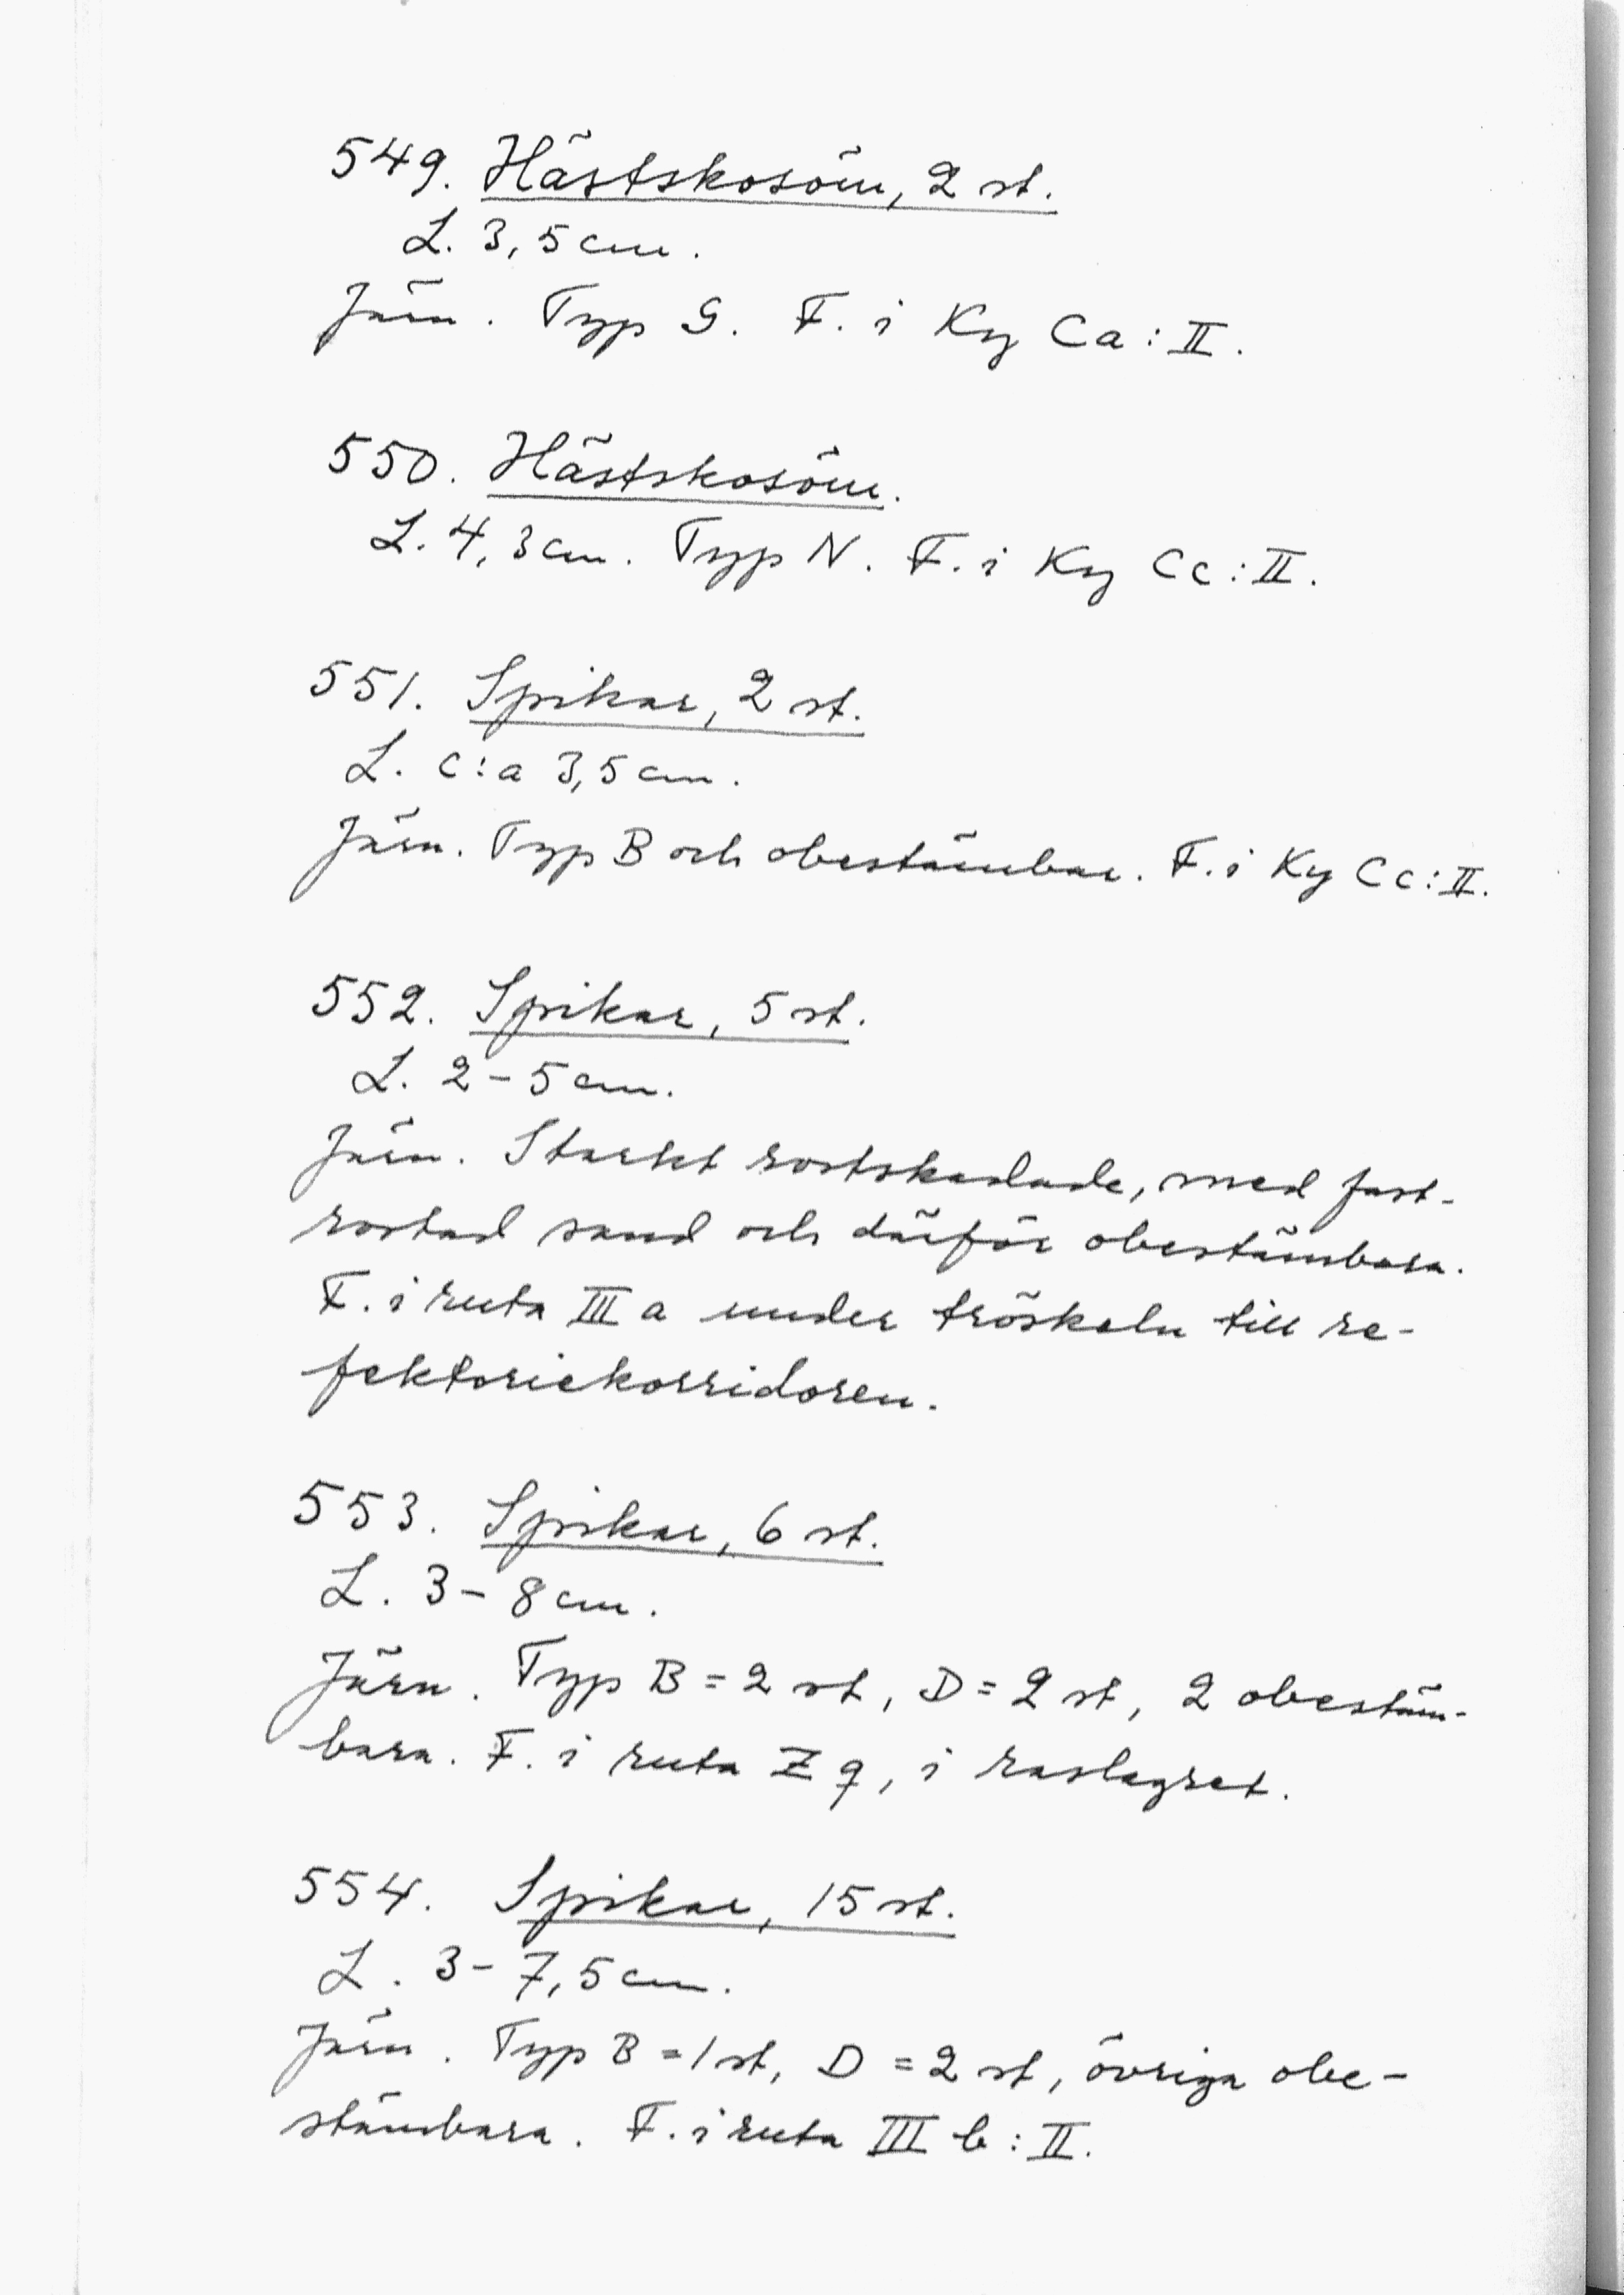 549. Hästskosöm, 2 st.
L. 3,5 cm.
Järn. Typ G. F. i Ky Ca:II.
550. Hästskosöm.
L. 4,3 cm. Typ N. F. i Ky Cc:II.
551. Spikar, 2 st.
L. c:a 3,5 cm.
Järn. Typ B och obestämbar. F. i Ky Cc:II.
552. Spikar, 5 st.
L. 2-5 cm.
Järn. Starkt rostskadade, med fast-
rostad sand och därför obestämbara.
F. i ruta III a under tröskeln till re-
fektoriekorridoren.
553. Spikar, 6 st.
L. 3-8 cm.
Järn. Typ B = 2 st, D = 2 st, 2 obestäm-
bara. F. i ruta Z q, i raslagret.
554. Spikar, 15 st.
L. 3-7,5 cm.
Järn. Typ B = 1 st, D = 2 st, övriga obe-
stämbara. F. i ruta III b:II.